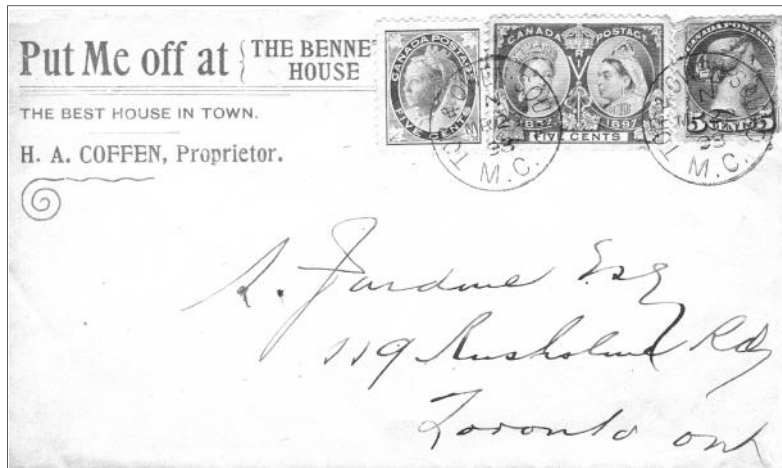 Put Me off at { THE BENNE
HOUSE
THE BEST HOUSE IN TOWN.
H. A. COFFEN, Proprietor.
CANADA POSTAGE
FIVE CENTS
CANADA POSTAGE
1837 1897
FIVE CENTS
CANADA POSTAGE
5 CENTS 5
M.C.
M.C.
A. Jardine Esq
119 Rusholme Rd
Toronto Ont